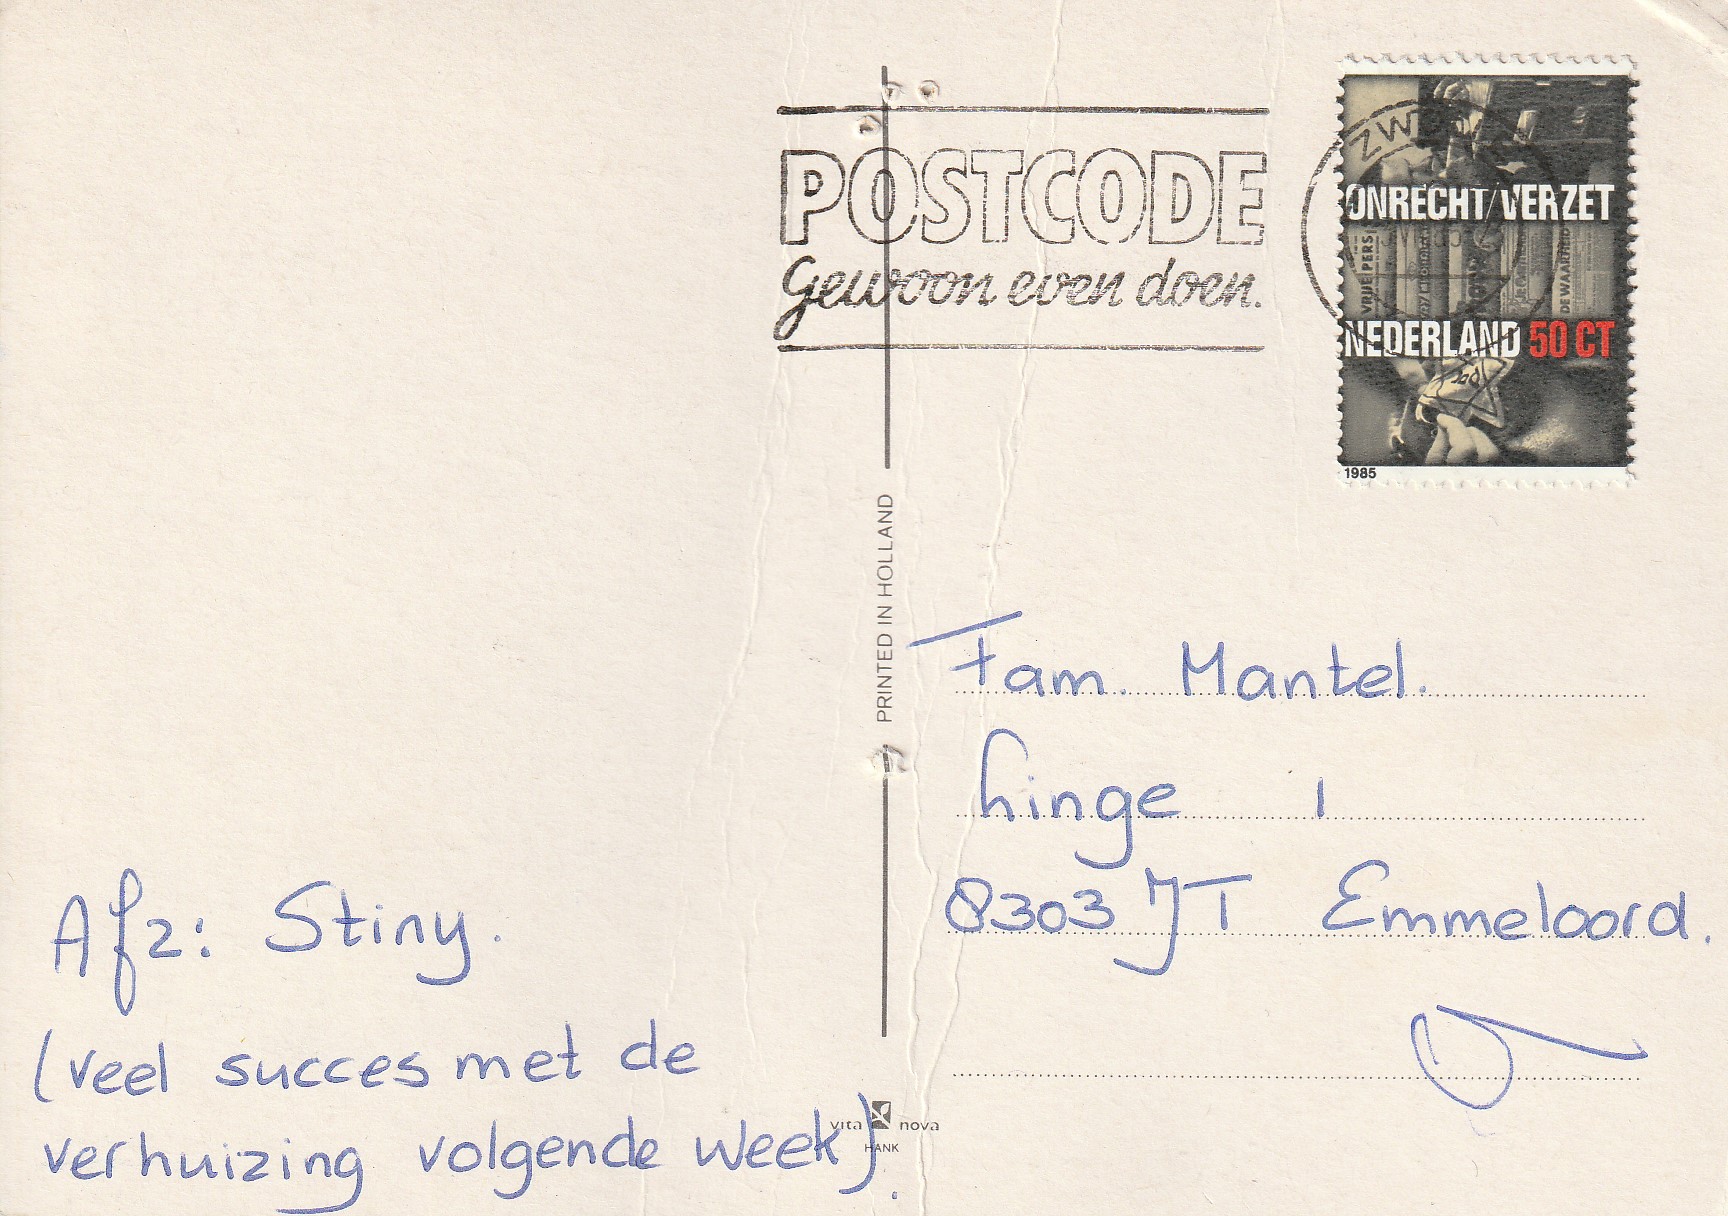 POSTCODE
Gewoon even doen.
ZW
ONRECHT/VERZET
VRIJE PERS
DE WAARHEID
NEDERLAND 50 CT
1985
PRINTED IN HOLLAND
Fam. Mantel.
Linge 1
8303 JT Emmeloord.
Afz: Stiny.
(veel succes met de
verhuizing volgende week).
vita nova
HANK